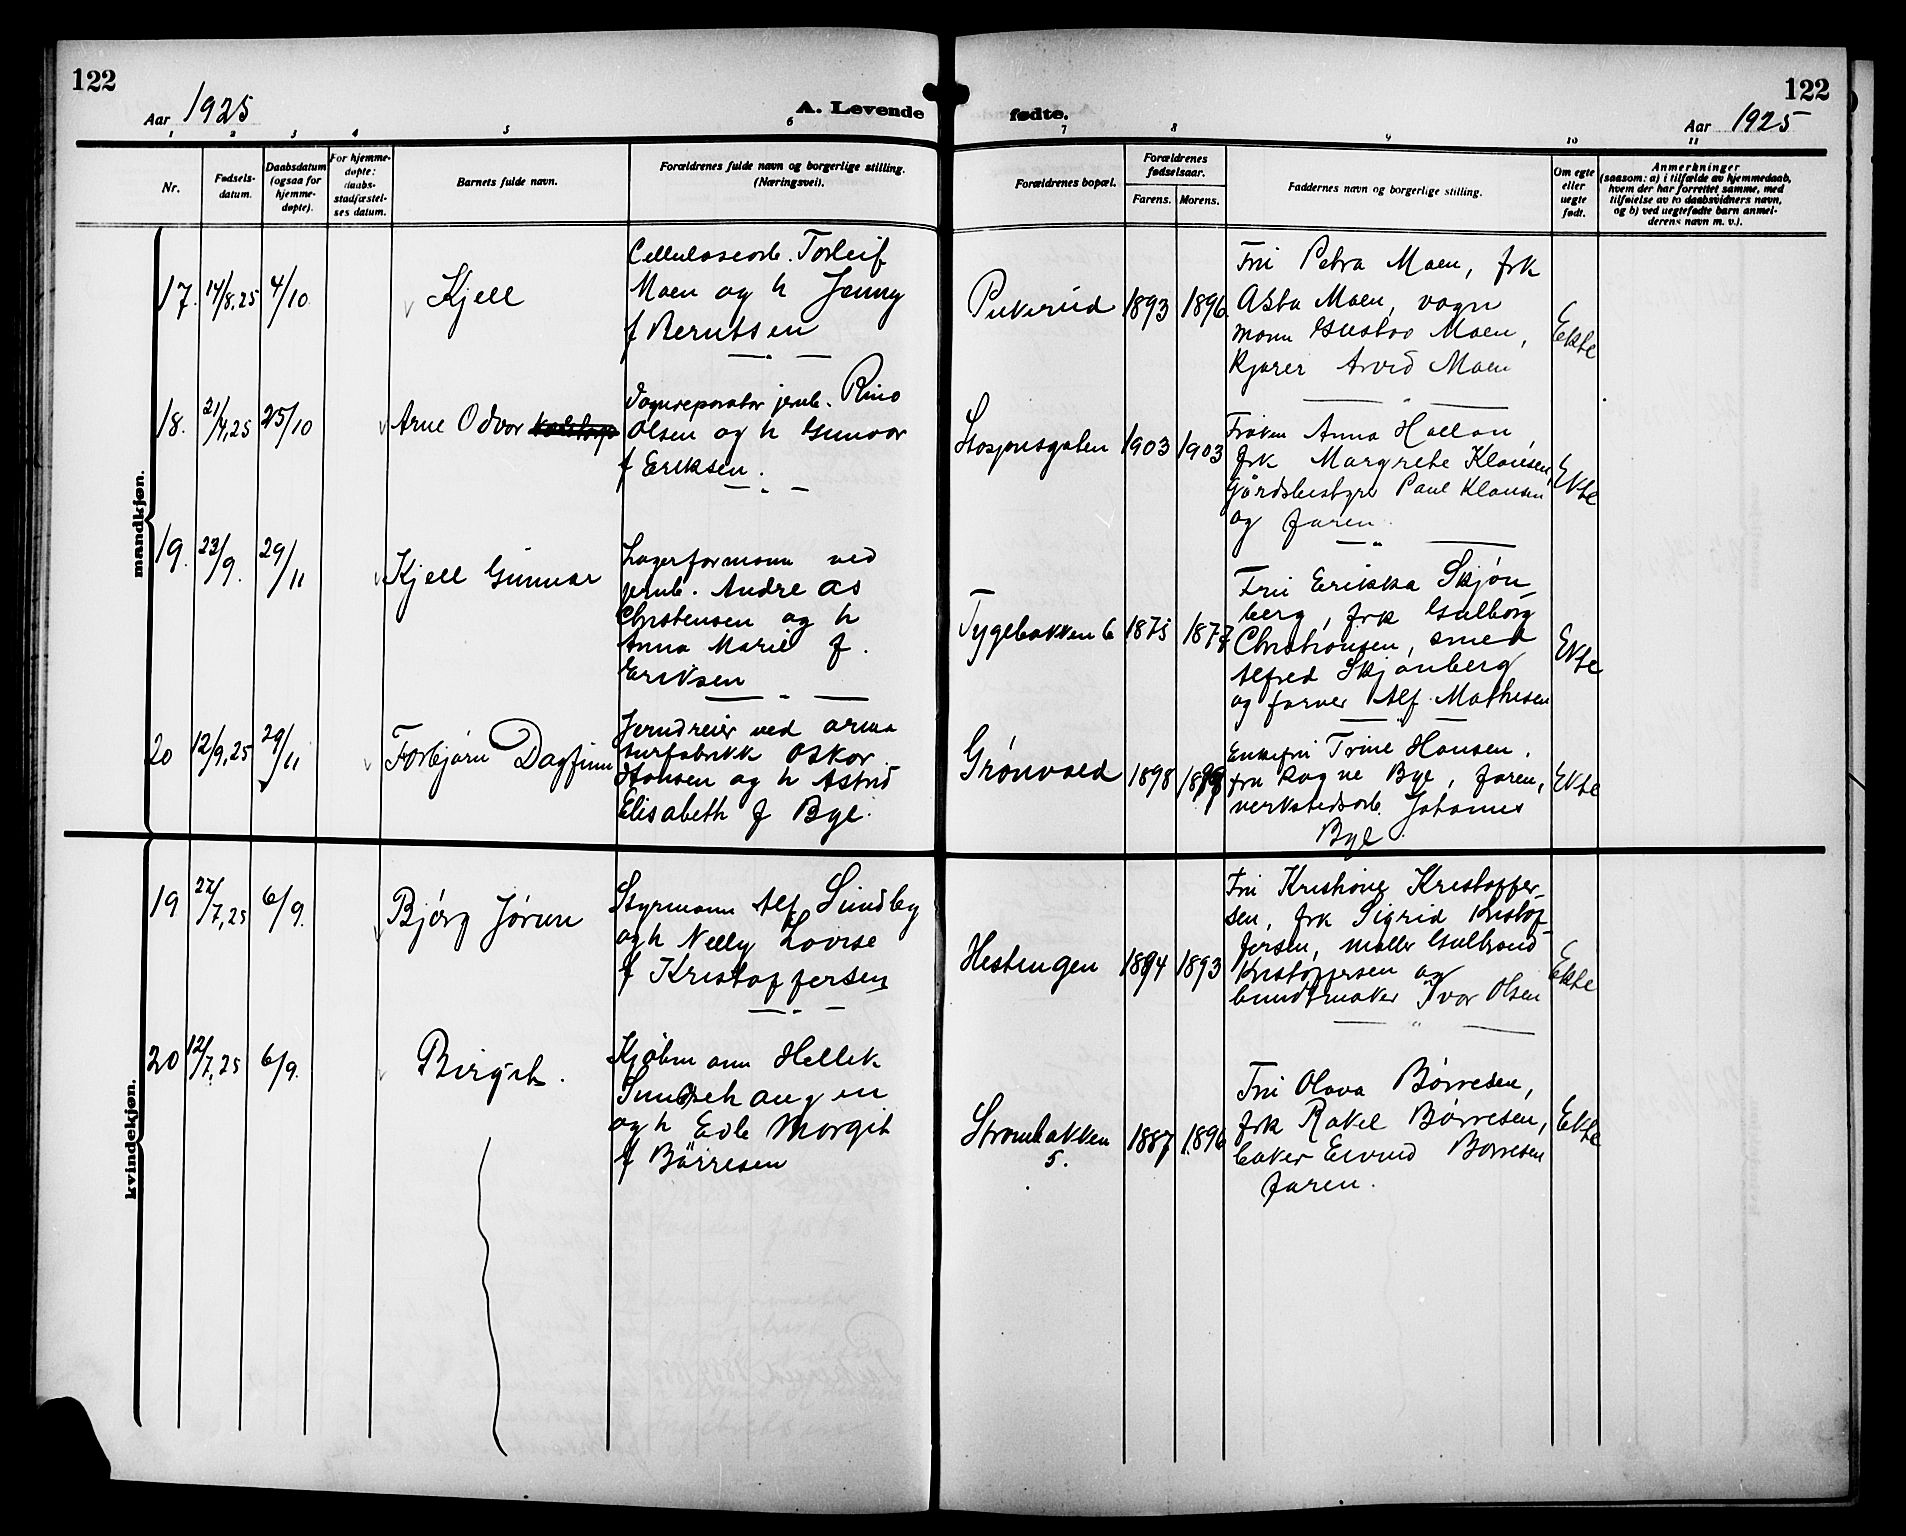 122
Aar 1925
A. Levende
fødte.
122
Aar 1925
1 2 3 4 5 6 7 8 9 10 11
Nr.
Fødsels-
datum.
Daabsdatum
(ogsaa for
hjemme-
døpte).
For hjemme-
døpte:
daabs-
stadfæstel-
ses datum.
Barnets fulde navn.
Forældrenes fulde navn og borgerlige stilling.
(Næringsvei).
Forældrenes bopæl.
Forældrenes
fødselsaar.
Farens. Morens.
Faddernes navn og borgerlige stilling.
Om egte
eller
uegte
født.
Anmerkninger
(saasom: a) i tilfælde av hjemmedaab,
hvem der har forrettet samme, med
tilføielse av to daabsvidners navn,
og b) ved uegtefødte barn anmel-
derens navn m. v.).
mandkjøn.
17. 14/8.25 4/10 Kjell
Cellulosearb. Torleif
Moen og h Jenny
f Berntsen
Pukerud 1893 1896
Fru Petra Moen, frk
Asta Moen, vogn
mann Gustav Moen,
kjører Arvid Moen
Ekte
18. 21/7,25 25/10 Arne Odvar
Vognreparatør jernb. Rino
Olsen og h Gunvor
f Eriksen.
Losjonsgaten 1903 1903
Frøken Anna Hallan,
frk Margrethe Klausen,
Gårdsbestyrer Paul Klausen
og faren.
Ekte
19. 23/9. 29/11 Kjell Gunnar
Lagerformann ved
jernb. Andreas
Christensen og h
Anna Marie f.
Eriksen
Tygebakken 6 1875 1877
Fru Erikka Skjøn-
berg, frk Gulborg
Christiansen, smed
Alfred Skjønberg
og farver Alf Mathisen
Ekte
20 12/9,25 29/11 Torbjørn Dagfinn
Jerndreier ved arma
turfabrikk Oskar
Hansen og h Astrid
Elisabeth f Bye.
Grønvold 1898
Enkefru Trine Hansen,
fru Ragne Bye, faren,
verkstedsarb. Johannes
Bye.
Ekte
kvindekjøn.
19 27/7,25 6/9. Bjørg Jørun
Styrmann Alf Sundby
og h Nelly Lovise
f Kristoffersen
Hestengen 1894 1893
Fru Kristiane Kristoffer-
sen, frk Sigrid Kristof-
fersen, møller Gulbrand
Kristoffersen og
buntmaker Ivar Olsen
Ekte
20 12/7,25 6/9. Birgit.
Kjøbmann Hellik
Sundehaugen
og h Edle Margit
f Börresen
Strømbakken
5.
1887 1896
Fru Olava Børresen,
frk Rakel Børresen,
baker Eivind Børresen
faren.
Ekte